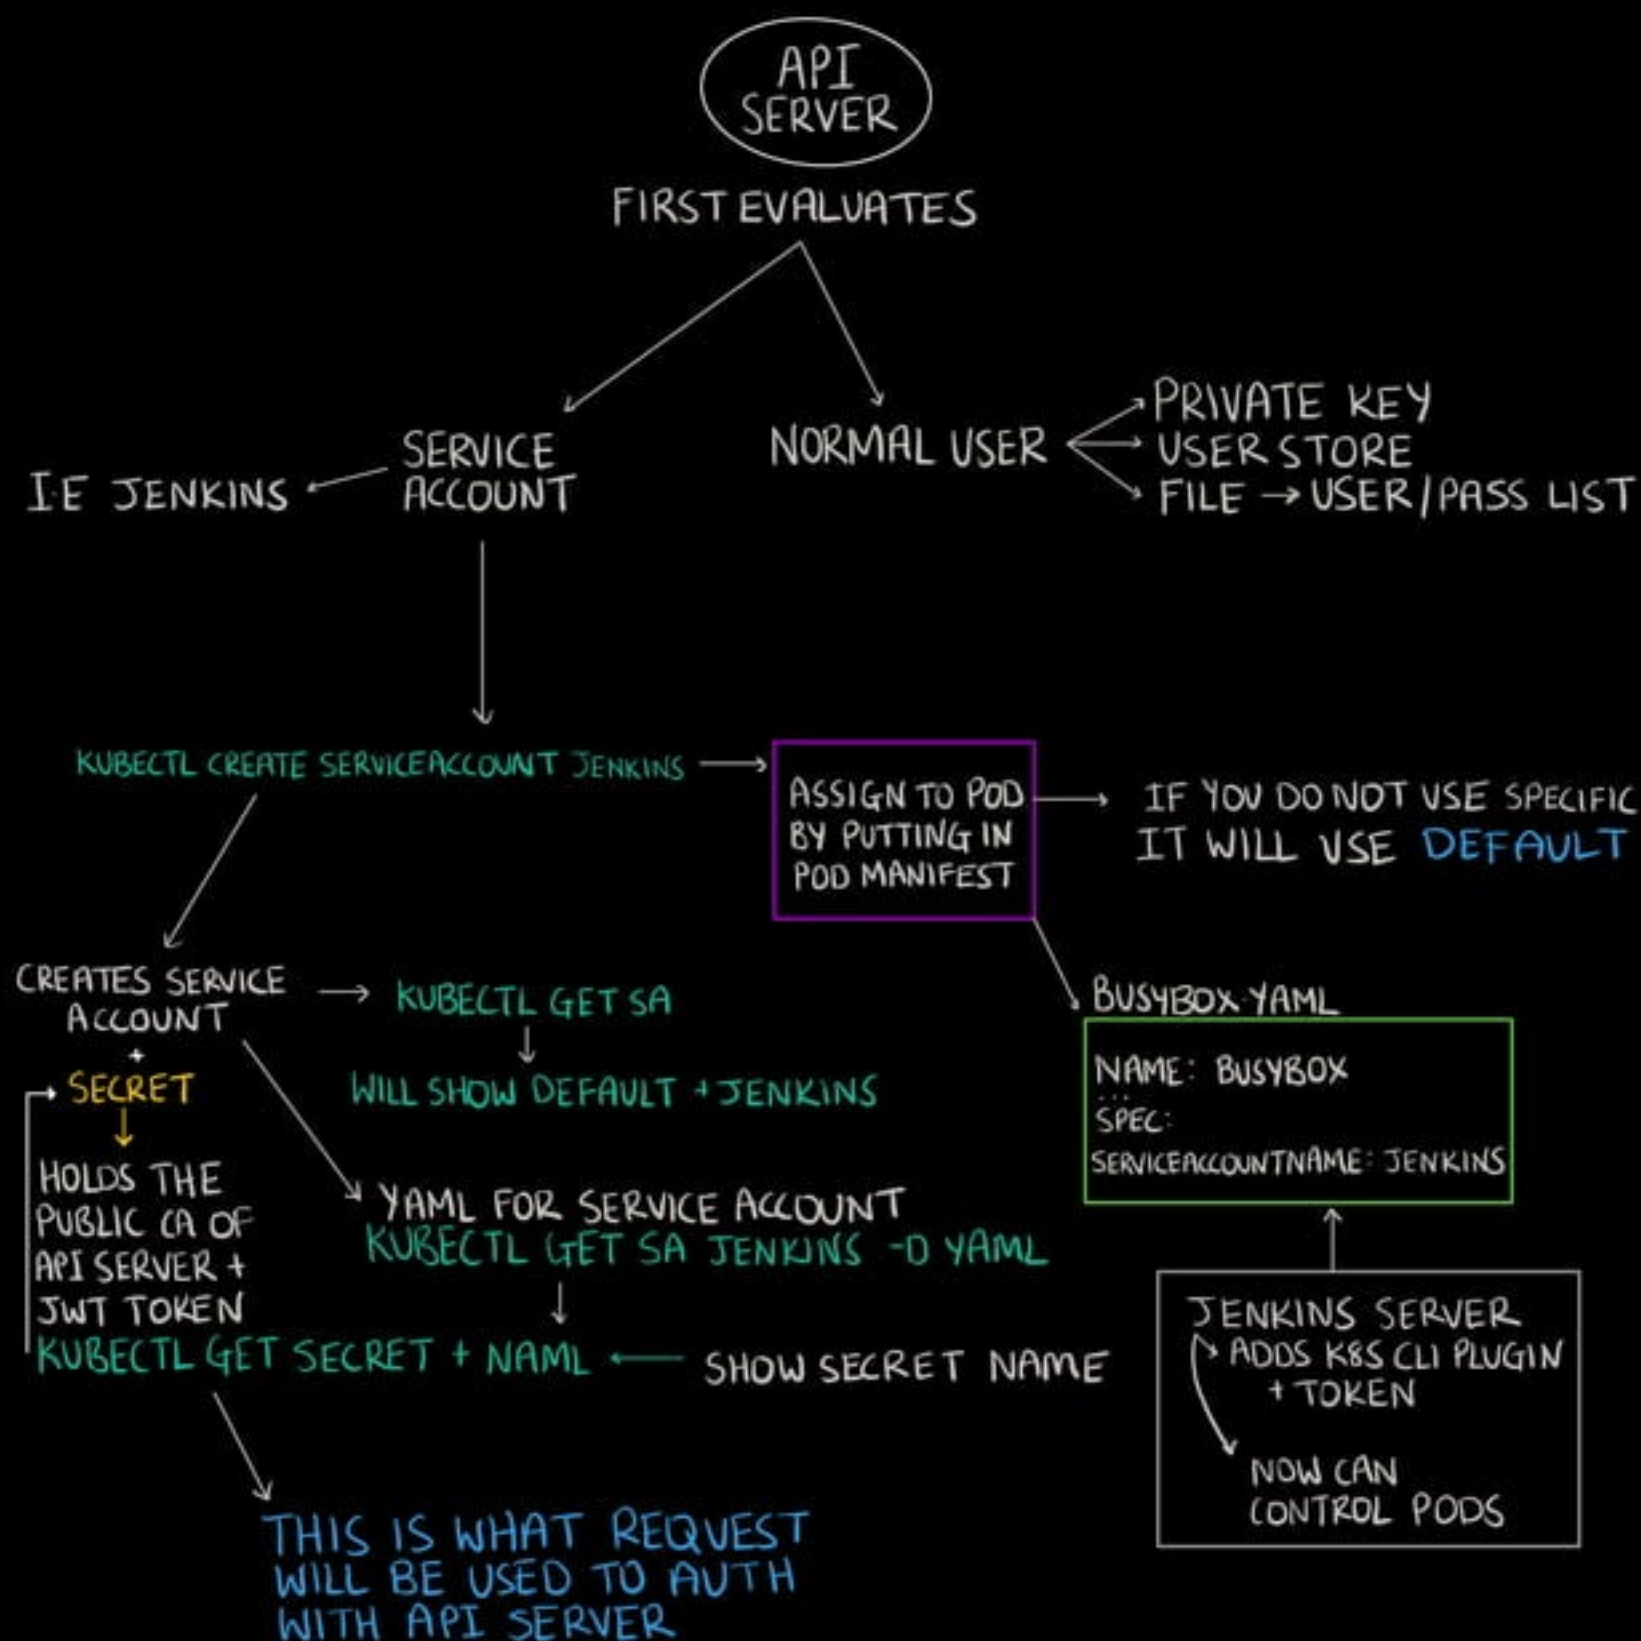 API
SERVER
FIRST EVALUATES
SERVICE
ACCOUNT
I.E JENKINS
NORMAL USER
PRIVATE KEY
USER STORE
FILE → USER/PASS LIST
KUBECTL CREATE SERVICEACCOUNT JENKINS
ASSIGN TO POD
BY PUTTING IN
POD MANIFEST
IF YOU DO NOT USE SPECIFIC
IT WILL USE DEFAULT
CREATES SERVICE
ACCOUNT
+
SECRET
HOLDS THE
PUBLIC CA OF
API SERVER +
JWT TOKEN
KUBECTL GET SA
WILL SHOW DEFAULT + JENKINS
YAML FOR SERVICE ACCOUNT
KUBECTL GET SA JENKINS -O YAML
KUBECTL GET SECRET + NAML
SHOW SECRET NAME
THIS IS WHAT REQUEST
WILL BE USED TO AUTH
WITH API SERVER
BUSYBOX.YAML
NAME: BUSYBOX
...
SPEC:
SERVICEACCOUNTNAME: JENKINS
JENKINS SERVER
ADDS K8S CLI PLUGIN
+ TOKEN
NOW CAN
CONTROL PODS